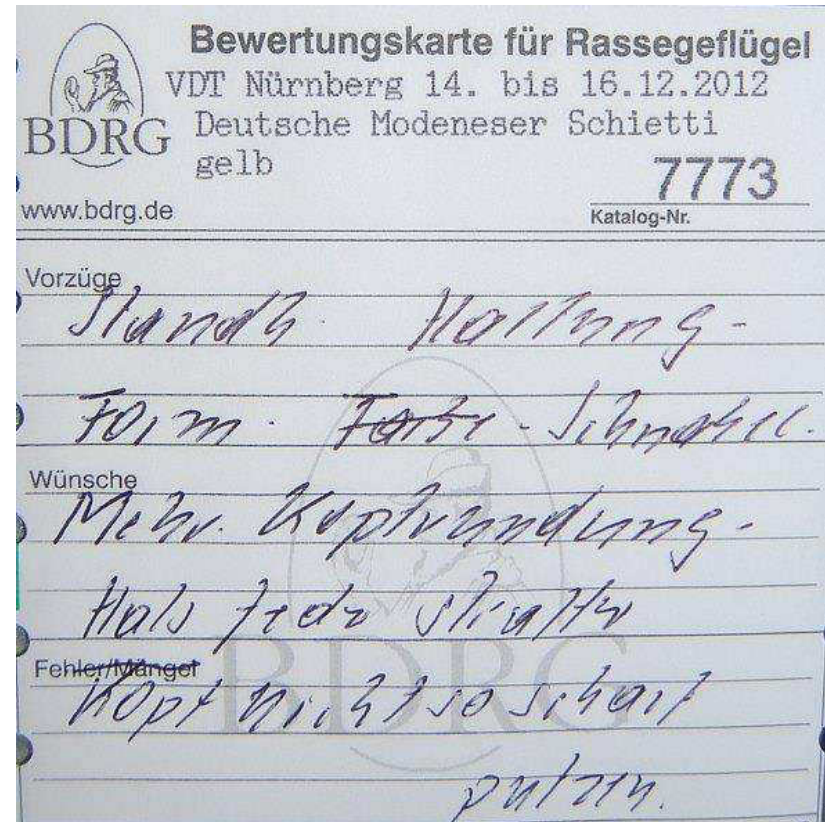 Bewertungskarte für Rassegeflügel
VDT Nürnberg 14. bis 16.12.2012
BDRG
Deutsche Modeneser Schietti
gelb
7773
www.bdrg.de
Katalog-Nr.
Vorzüge
Standh. Haltung-
Form. Farbe-Schnabel.
Wünsche
Mehr. Kopfrundung-
Hals feder straffer
Fehler/Mängel
Kopf nicht so scharf
BDRG
putzen.